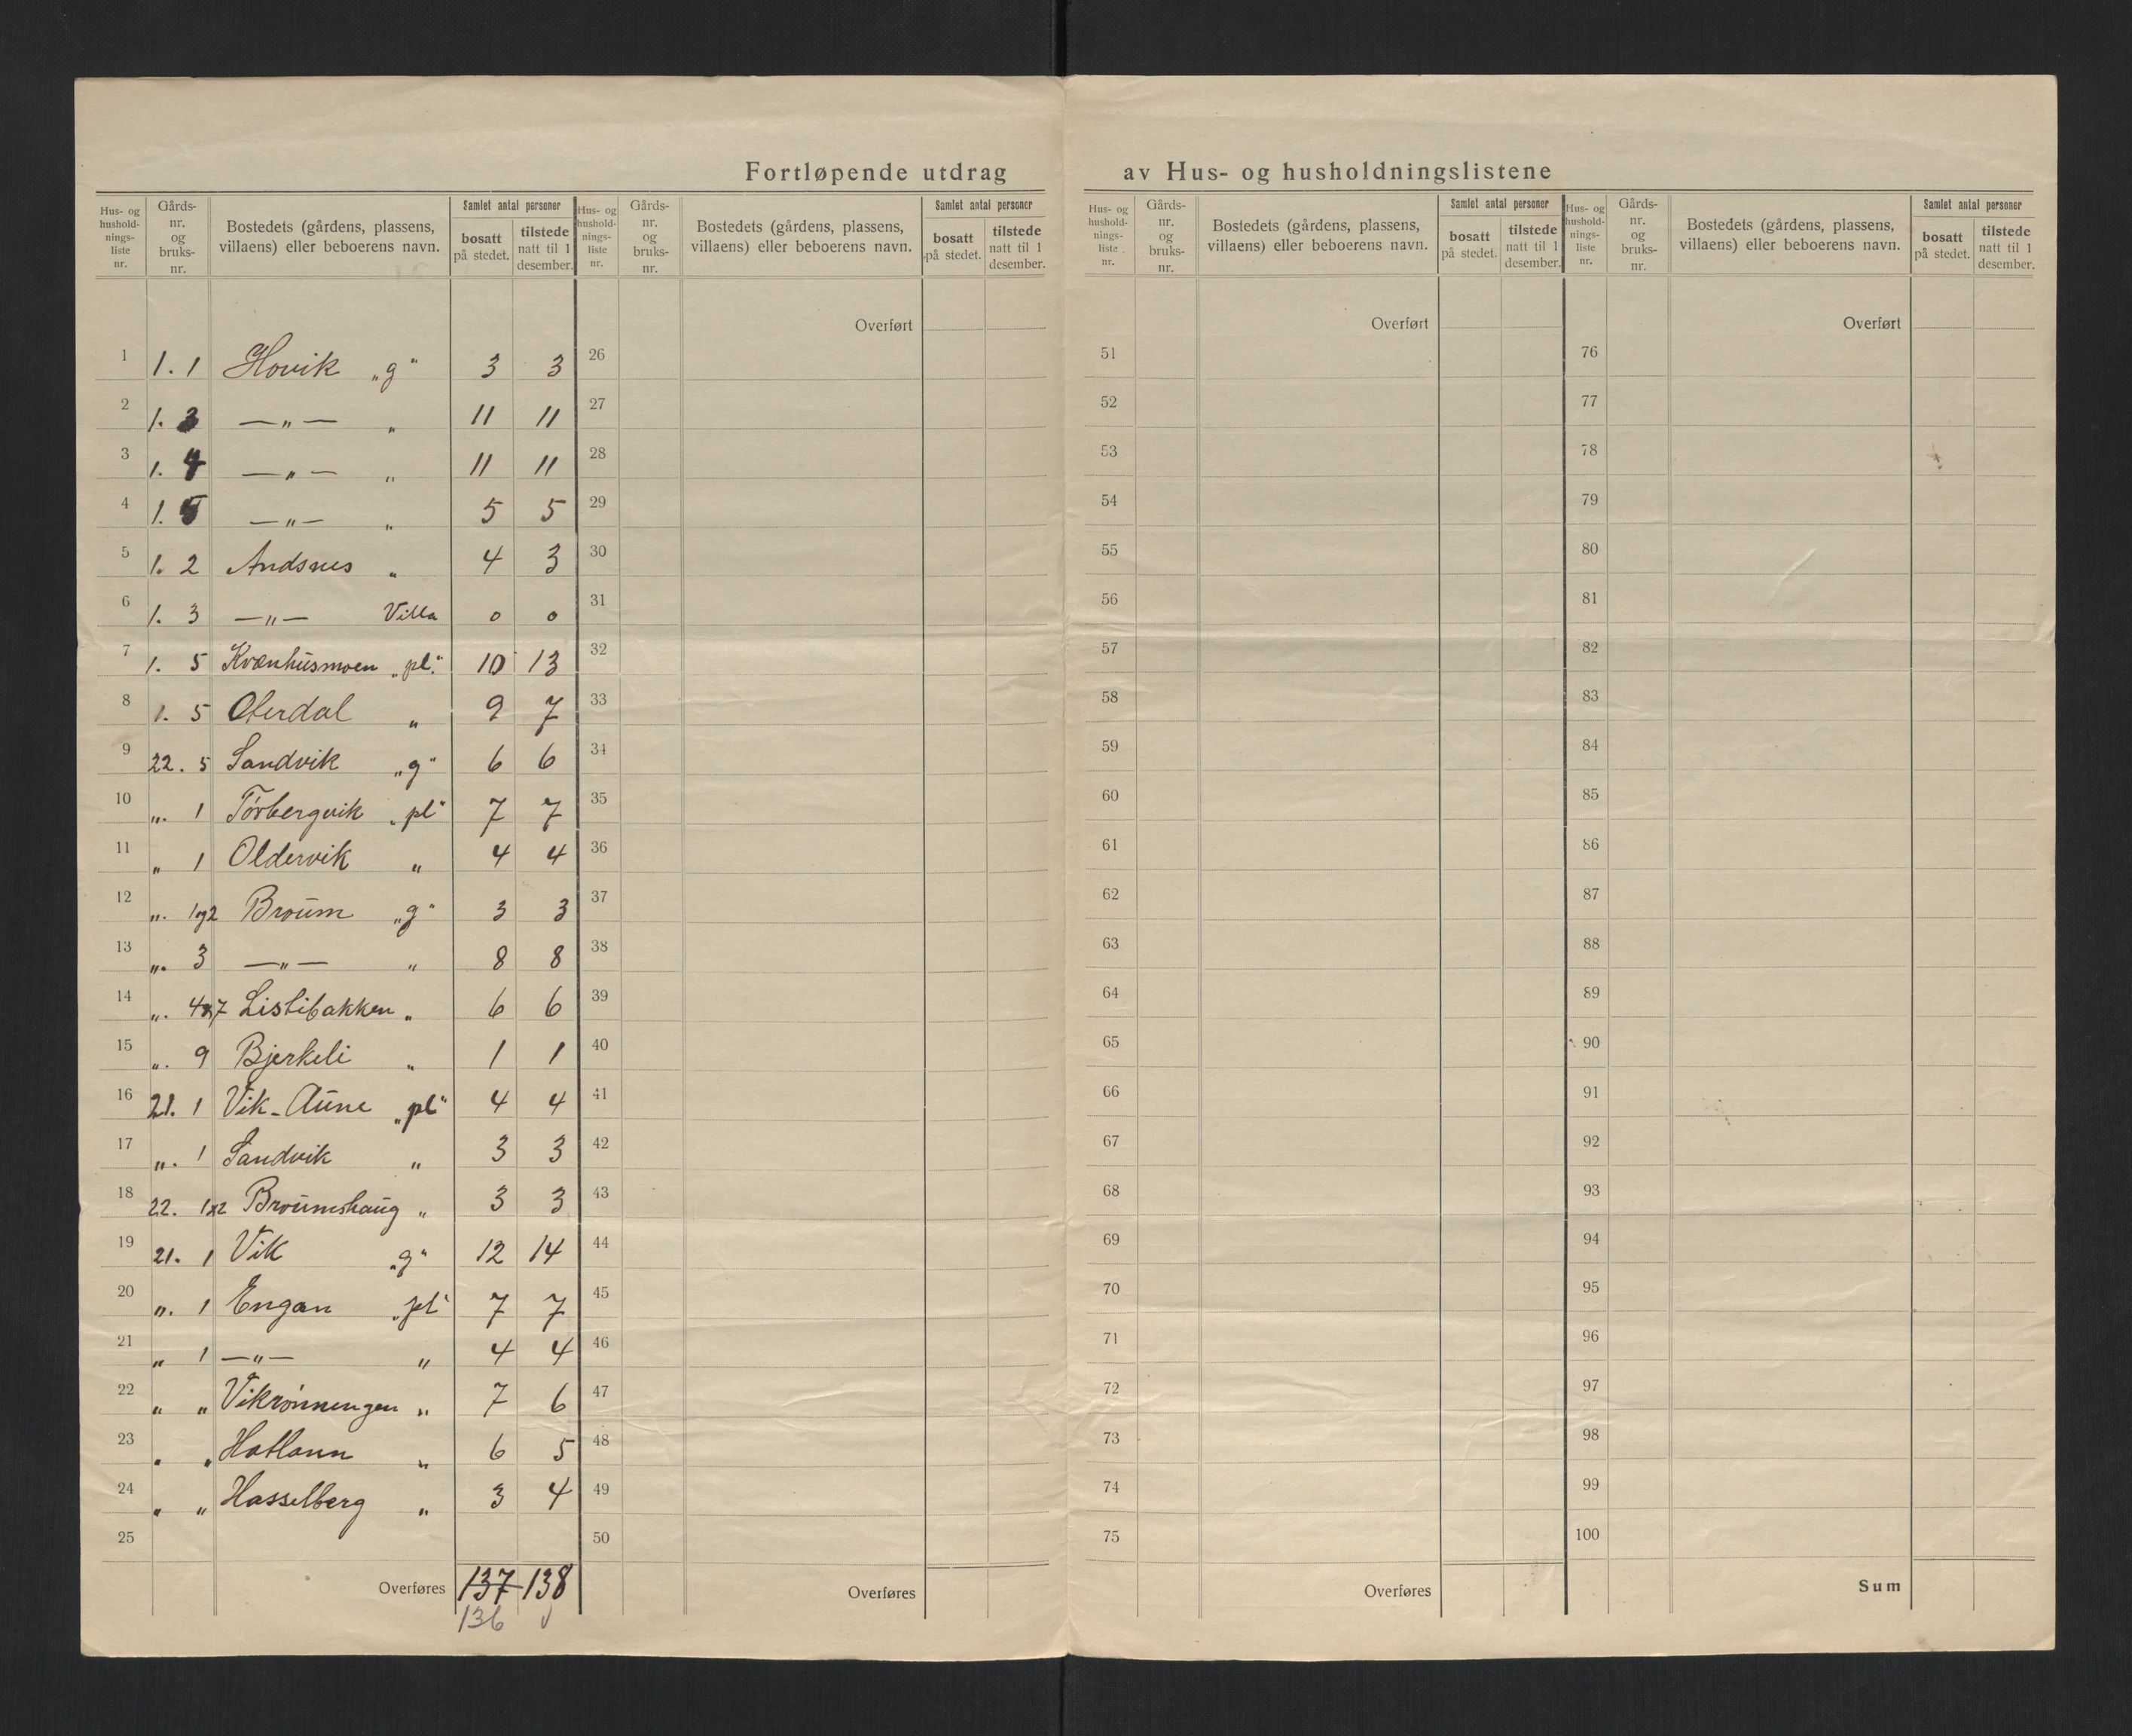 Fortløpende utdrag av Hus- og husholdningslistene
Hus- og hushold-nings-liste nr. Gårds-nr. og bruks-nr. Bostedets (gårdens, plassens, villaens) eller beboerens navn. Samlet antal personer bosatt på stedet. tilstede natt til 1 desember.
1 1. 1 Hovik „g“ 3 3
2 1. 3 —„— „ 11 11
3 1. 4 —„— „ 11 11
4 1. 5 —„— „ 5 5
5 1. 2 Andsnes „ 4 3
6 1. 3 —„— Villa 0 0
7 1. 5 Kvænhusmoen „pl.“ 10 13
8 1. 5 Oterdal „ 9 7
9 22. 5 Sandvik „g“ 6 6
10 „. 1 Torbergvik „pl“ 7 7
11 „ 1 Oldervik „ 4 4
12 „. 1og2 Broum „g“ 3 3
13 „. 3 —„— „ 8 8
14 „. 4og7 Listibakken „ 6 6
15 „. 9 Bjerkeli „ 1 1
16 21. 1 Vik-Aune „pl“ 4 4
17 „. 1 Sandvik „ 3 3
18 22. 1x2 Broumshaug „ 3 3
19 21. 1 Vik „g“ 12 14
20 „. 1 Engan „pl“ 7 7
21 „ 1 —„— „ 4 4
22 „ „ Vikrønningen „ 7 6
23 „ „ Hatlann „ 6 5
24 „ „ Hasselberg „ 3 4
25
Overføres 137 138
136 √
Hus- og hushold-nings-liste nr. Gårds-nr. og bruks-nr. Bostedets (gårdens, plassens, villaens) eller beboerens navn. Samlet antal personer bosatt på stedet. tilstede natt til 1 desember.
Overført
26
27
28
29
30
31
32
33
34
35
36
37
38
39
40
41
42
43
44
45
46
47
48
49
50
Overføres
Hus- og hushold-nings-liste nr. Gårds-nr. og bruks-nr. Bostedets (gårdens, plassens, villaens) eller beboerens navn. Samlet antal personer bosatt på stedet. tilstede natt til 1 desember.
Overført
51
52
53
54
55
56
57
58
59
60
61
62
63
64
65
66
67
68
69
70
71
72
73
74
75
Overføres
Hus- og hushold-nings-liste nr. Gårds-nr. og bruks-nr. Bostedets (gårdens, plassens, villaens) eller beboerens navn. Samlet antal personer bosatt på stedet. tilstede natt til 1 desember.
Overført
76
77
78
79
80
81
82
83
84
85
86
87
88
89
90
91
92
93
94
95
96
97
98
99
100
Sum